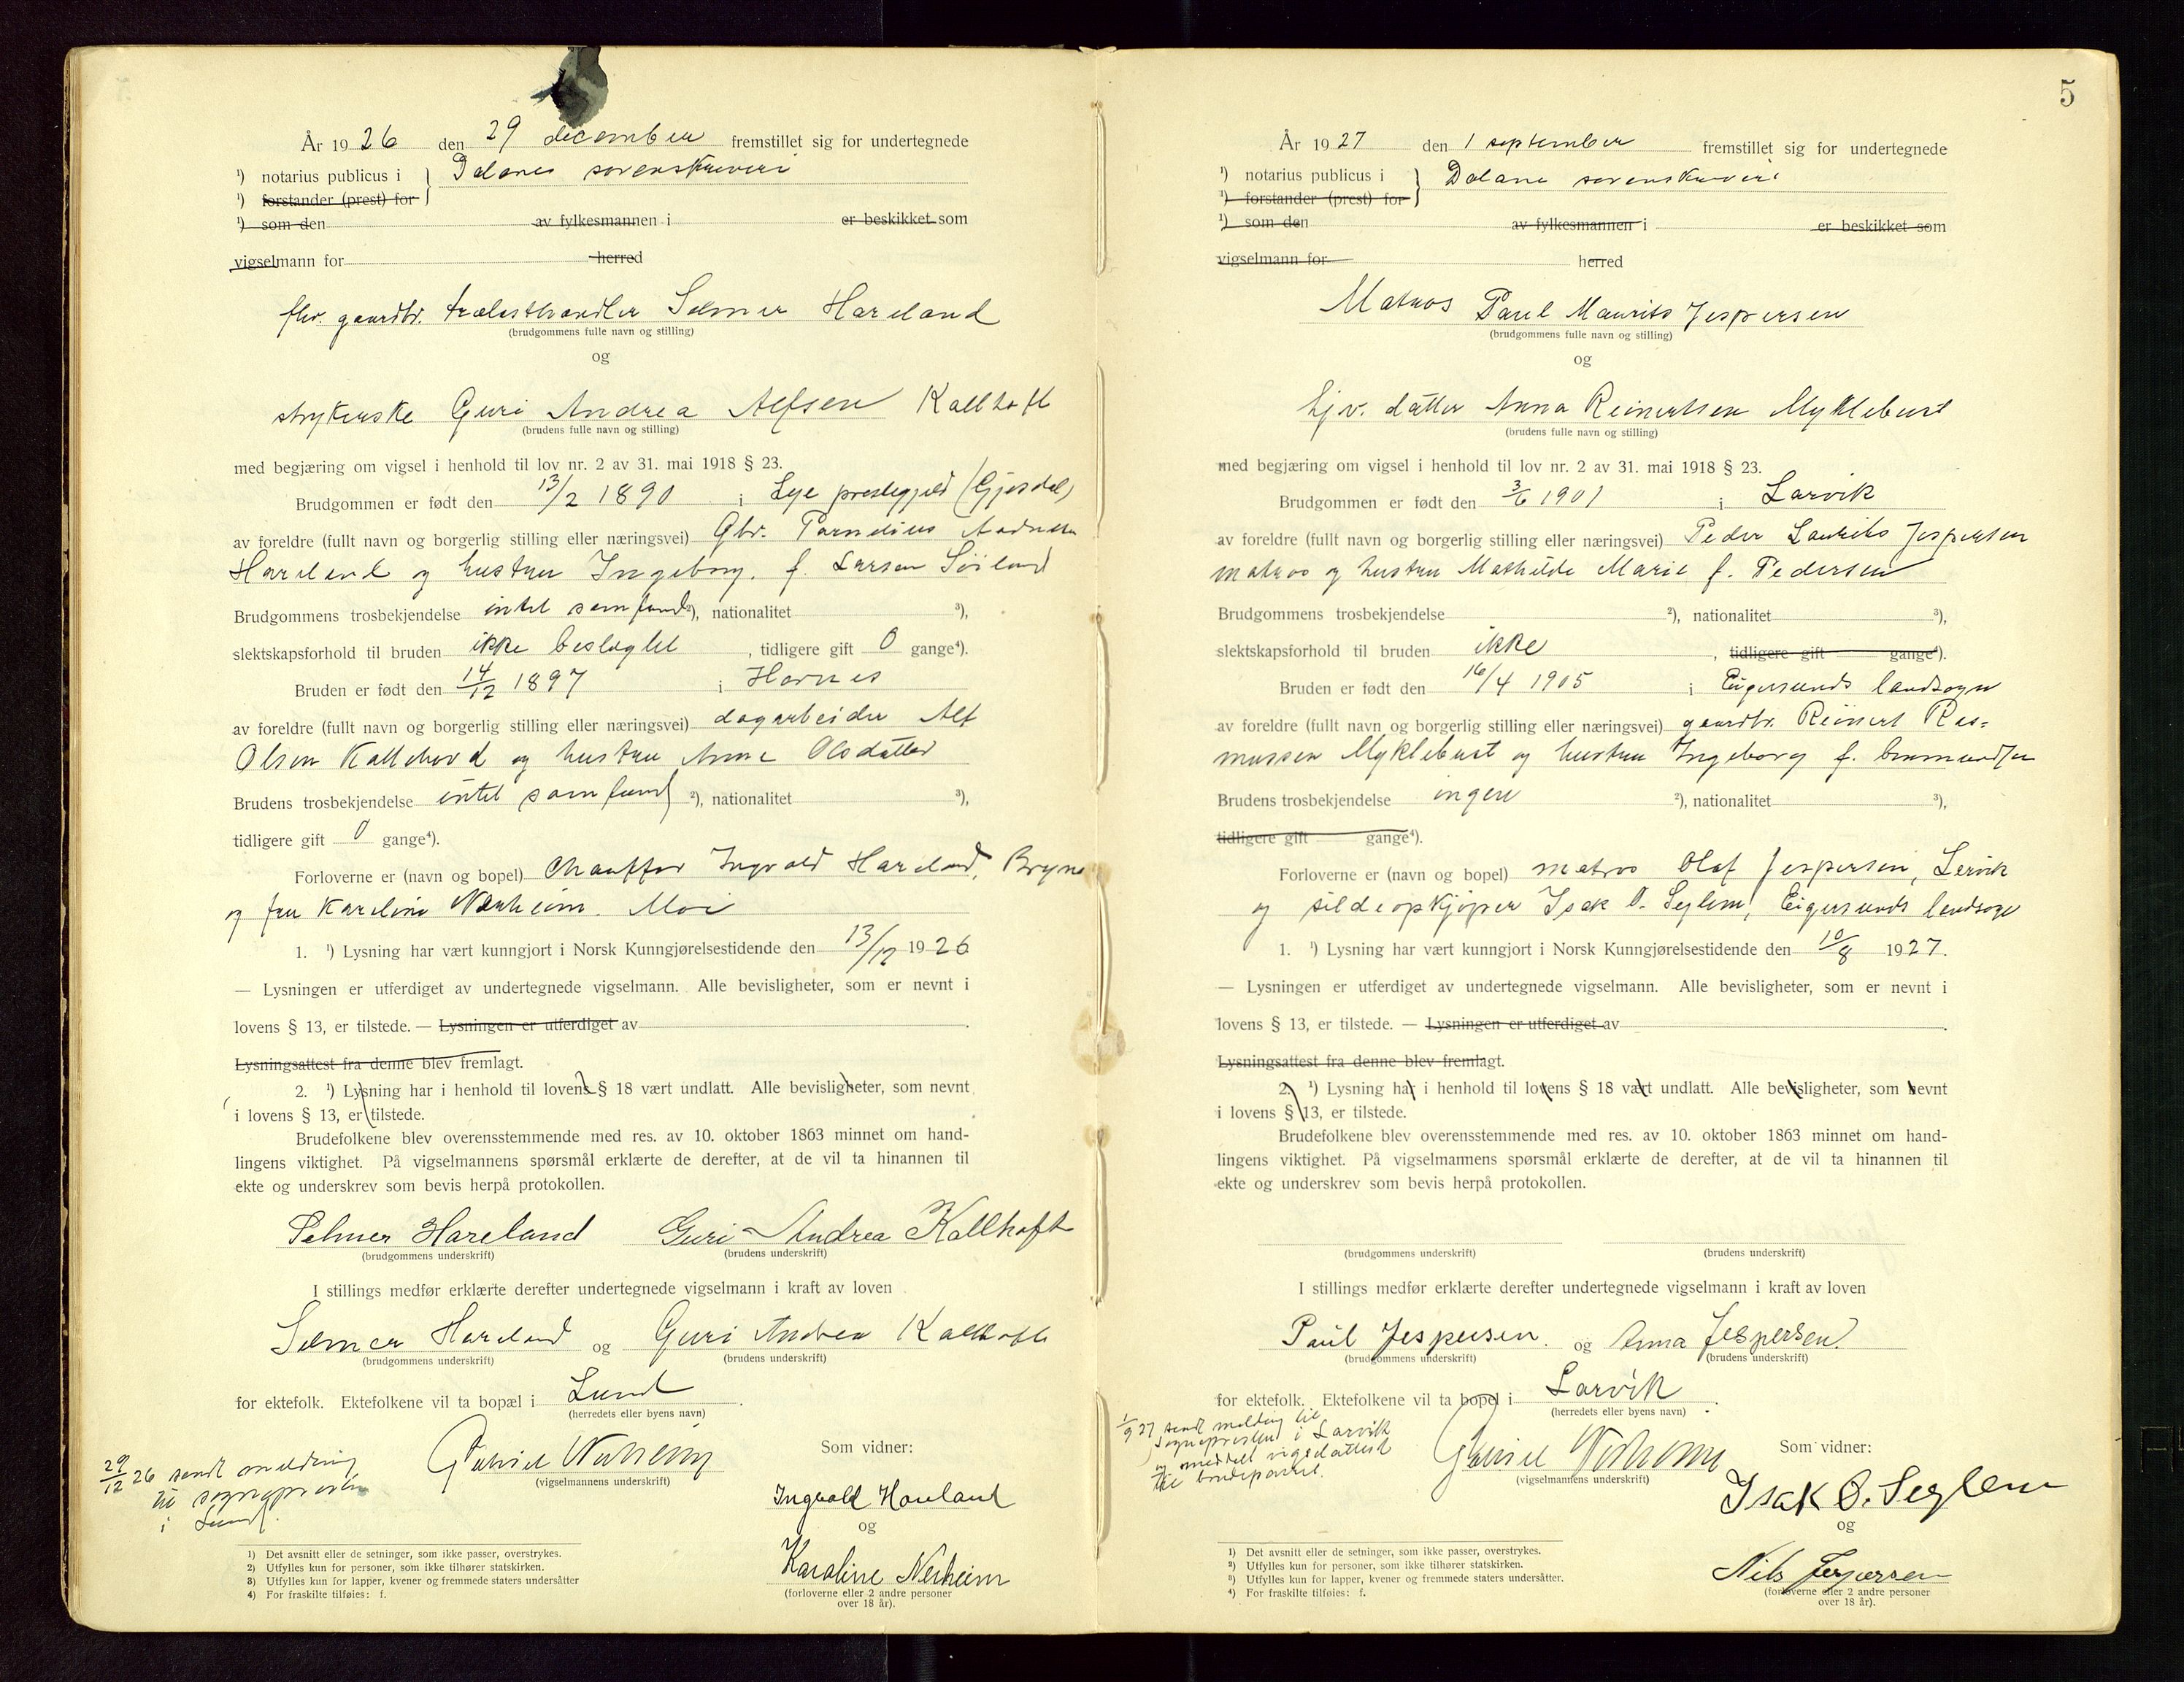 År 1926 den 29 december fremstillet sig for undertegnede
¹) notarius publicus i } Dalanes sorenskriveri
¹) forstander (prest) for
¹) som den av fylkesmannen i er beskikket som
vigselmann for herred
fhv. gaardbr. trælasthandler Selmer Hareland
(brudgommens fulle navn og stilling)
og
strykerske Guri Andrea Alfsen Kallhoft
(brudens fulle navn og stilling)
med begjæring om vigsel i henhold til lov nr. 2 av 31. mai 1918 § 23.
Brudgommen er født den 13/2 1890 i Lye prestegjeld (Gjesdal)
av foreldre (fullt navn og borgerlig stilling eller næringsvei) Gbr. Parnelius Aadnesen
Hareland og hustru Ingeborg. f. Larsen Söiland
Brudgommens trosbekjendelse intet samfund ²), nationalitet ³),
slektskapsforhold til bruden ikke beslagtet, tidligere gift 0 gange⁴).
Bruden er født den 14/12 1897 i Hornes
av foreldre (fullt navn og borgerlig stilling eller næringsvei) dagarbeider Alf
Olsen Kallehovd og hustru Anne Olsdatter
Brudens trosbekjendelse intet samfund ²), nationalitet ³),
tidligere gift 0 gange⁴).
Forloverne er (navn og bopel) Chauffør Ingvald Hareland, Bryne
og fru Karoline Nerheim. Moi
1. ¹) Lysning har vært kunngjort i Norsk Kunngjørelsestidende den 13/12 1926
— Lysningen er utferdiget av undertegnede vigselmann. Alle bevisligheter, som er nevnt i
lovens § 13, er tilstede. — Lysningen er utferdiget av .
Lysningsattest fra denne blev fremlagt.
2. ¹) Lysning har i henhold til lovens § 18 vært undlatt. Alle bevisligheter, som nevnt
i lovens § 13, er tilstede.
Brudefolkene blev overensstemmende med res. av 10. oktober 1863 minnet om hand-
lingens viktighet. På vigselmannens spørsmål erklærte de derefter, at de vil ta hinannen til
ekte og underskrev som bevis herpå protokollen.
Selmer Hareland Guri Andrea Kallhoft
(brudgommens underskrift) (brudens underskrift)
I stillings medfør erklærte derefter undertegnede vigselmann i kraft av loven
Selmer Hareland og Guri Andrea Kallhoft
(brudgommens underskrift) (brudens underskrift)
for ektefolk. Ektefolkene vil ta bopæl i Lund.
(herredets eller byens navn)
Gabriel Nerheim
(vigselmannens underskrift)
29/12 26 sendt melding
til sognepresten
i Lund.
Som vidner:
Ingvald Hareland
og
Karoline Nerheim
(forloverne eller 2 andre personer
over 18 år).
1) Det avsnitt eller de setninger, som ikke passer, overstrykes.
2) Utfylles kun for personer, som ikke tilhører statskirken.
3) Utfylles kun for lapper, kvener og fremmede staters undersåtter
4) For fraskilte tilføies: f.
5
År 1927 den 1 september fremstillet sig for undertegnede
¹) notarius publicus i } Dalane sorenskriveri
¹) forstander (prest) for
¹) som den av fylkesmannen i er beskikket som
vigselmann for herred
Matros Paul Maurits Jespersen
(brudgommens fulle navn og stilling)
og
hjv. datter Anna Reinertsen Myklebust
(brudens fulle navn og stilling)
med begjæring om vigsel i henhold til lov nr. 2 av 31. mai 1918 § 23.
Brudgommen er født den 3/6 1901 i Larvik
av foreldre (fullt navn og borgerlig stilling eller næringsvei) Peder Laurits Jespersen
matros og hustru Mathilde Marie f. Pedersen
Brudgommens trosbekjendelse ²), nationalitet ³),
slektskapsforhold til bruden ikke, tidligere gift gange⁴).
Bruden er født den 16/4 1905 i Eigersunds landsogn
av foreldre (fullt navn og borgerlig stilling eller næringsvei) gaardbr. Reinert Ras=
mussen Myklebust og hustru Ingeborg f.
Brudens trosbekjendelse ingen ²), nationalitet ³),
tidligere gift gange⁴).
Forloverne er (navn og bopel) matros Olaf Jespersen, Larvik
og sildeopkjøper Isak O. Seglem, Eigersunds landsogn
1. ¹) Lysning har vært kunngjort i Norsk Kunngjørelsestidende den 10/8 1927.
— Lysningen er utferdiget av undertegnede vigselmann. Alle bevisligheter, som er nevnt i
lovens § 13, er tilstede. — Lysningen er utferdiget av .
Lysningsattest fra denne blev fremlagt.
2. ¹) Lysning har i henhold til lovens § 18 vært undlatt. Alle bevisligheter, som nevnt
i lovens § 13, er tilstede.
Brudefolkene blev overensstemmende med res. av 10. oktober 1863 minnet om hand-
lingens viktighet. På vigselmannens spørsmål erklærte de derefter, at de vil ta hinannen til
ekte og underskrev som bevis herpå protokollen.
(brudgommens underskrift) (brudens underskrift)
I stillings medfør erklærte derefter undertegnede vigselmann i kraft av loven
Paul Jespersen. og Anna Jespersen.
(brudgommens underskrift) (brudens underskrift)
for ektefolk. Ektefolkene vil ta bopel i Larvik.
(herredets eller byens navn)
1/9 27 sendt melding til
sognepresten i Larvik
og meddelt vigselattest
til brudeparret.
Gabriel Nerheim
(vigselmannens underskrift)
Som vidner:
Isak O. Seglem
og
Nils Jespersen
(forloverne eller 2 andre personer
over 18 år).
1) Det avsnitt eller de setninger, som ikke passer, overstrykes.
2) Utfylles kun for personer, som ikke tilhører statskirken.
3) Utfylles kun for lapper, kvener og fremmede staters undersåtter.
4) For fraskilte tilføies: f.